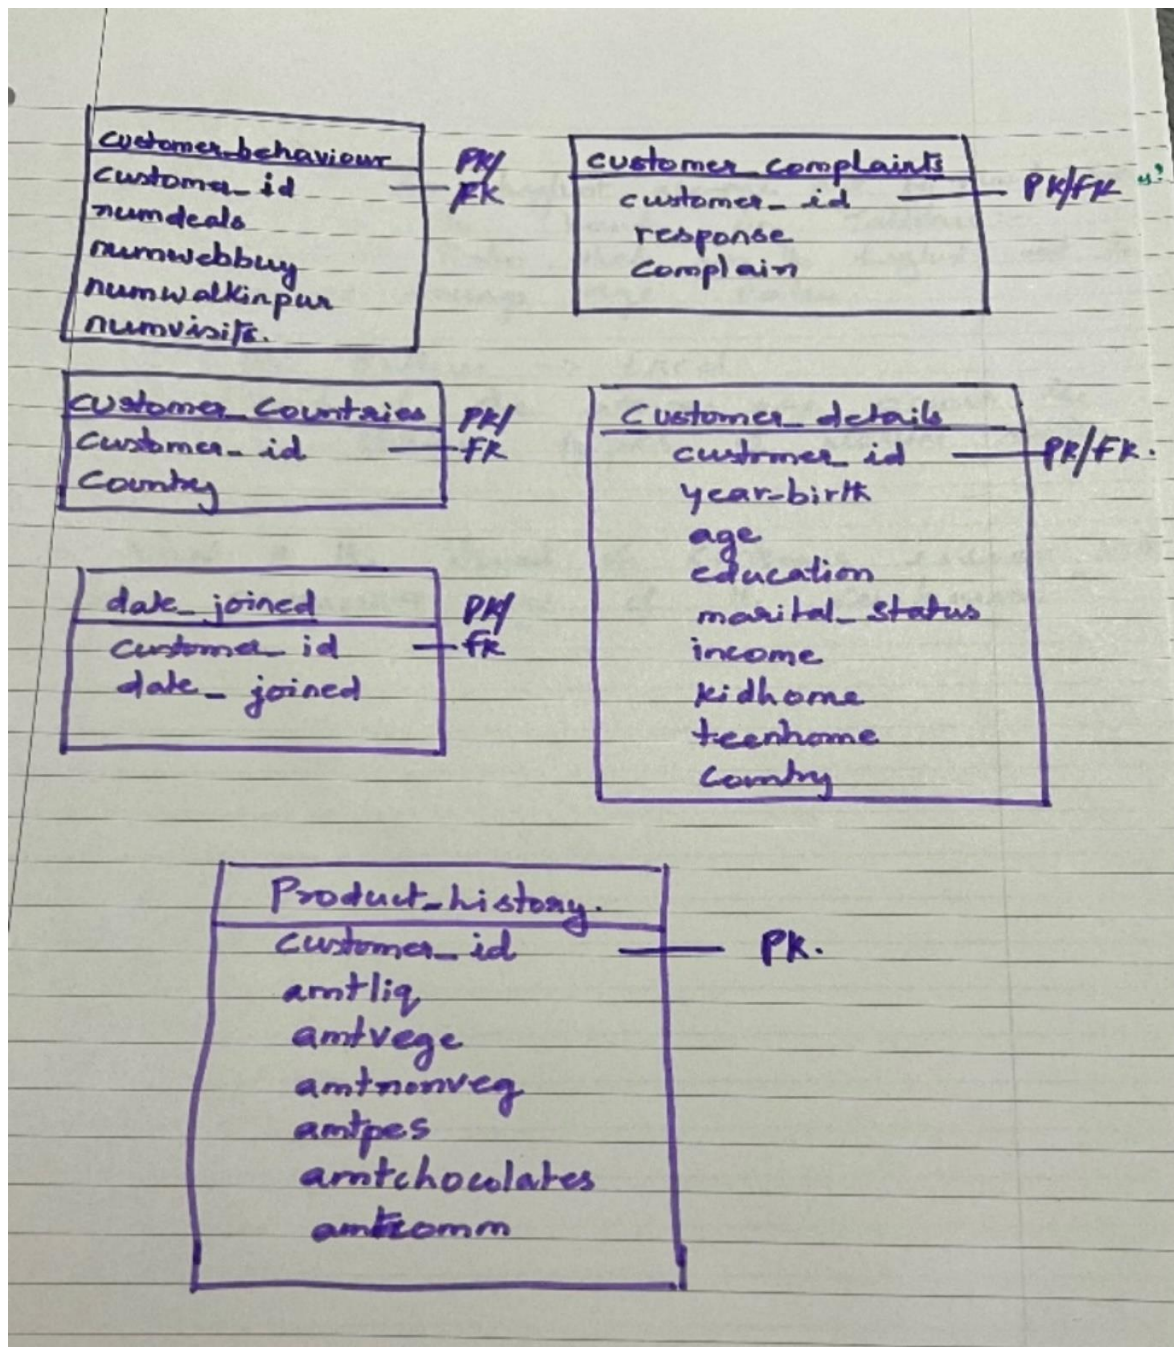 customer_behaviour
customer_id
PK/
FK
numdeals
numwebbuy
numwalkinpur
numvisits.
customer_complaints
customer_id
PK/FK
response
complain
customer_countries
customer_id
PK/
FK
Country
Customer_details
customer_id
PK/FK.
year-birth
age
education
marital_status
income
kidhome
teenhome
Country
date_joined
customer_id
PK/
FK
date_joined
Product_history.
customer_id
PK.
amtliq
amtvege
amtnonveg
amtpes
amtchocolates
amtcomm